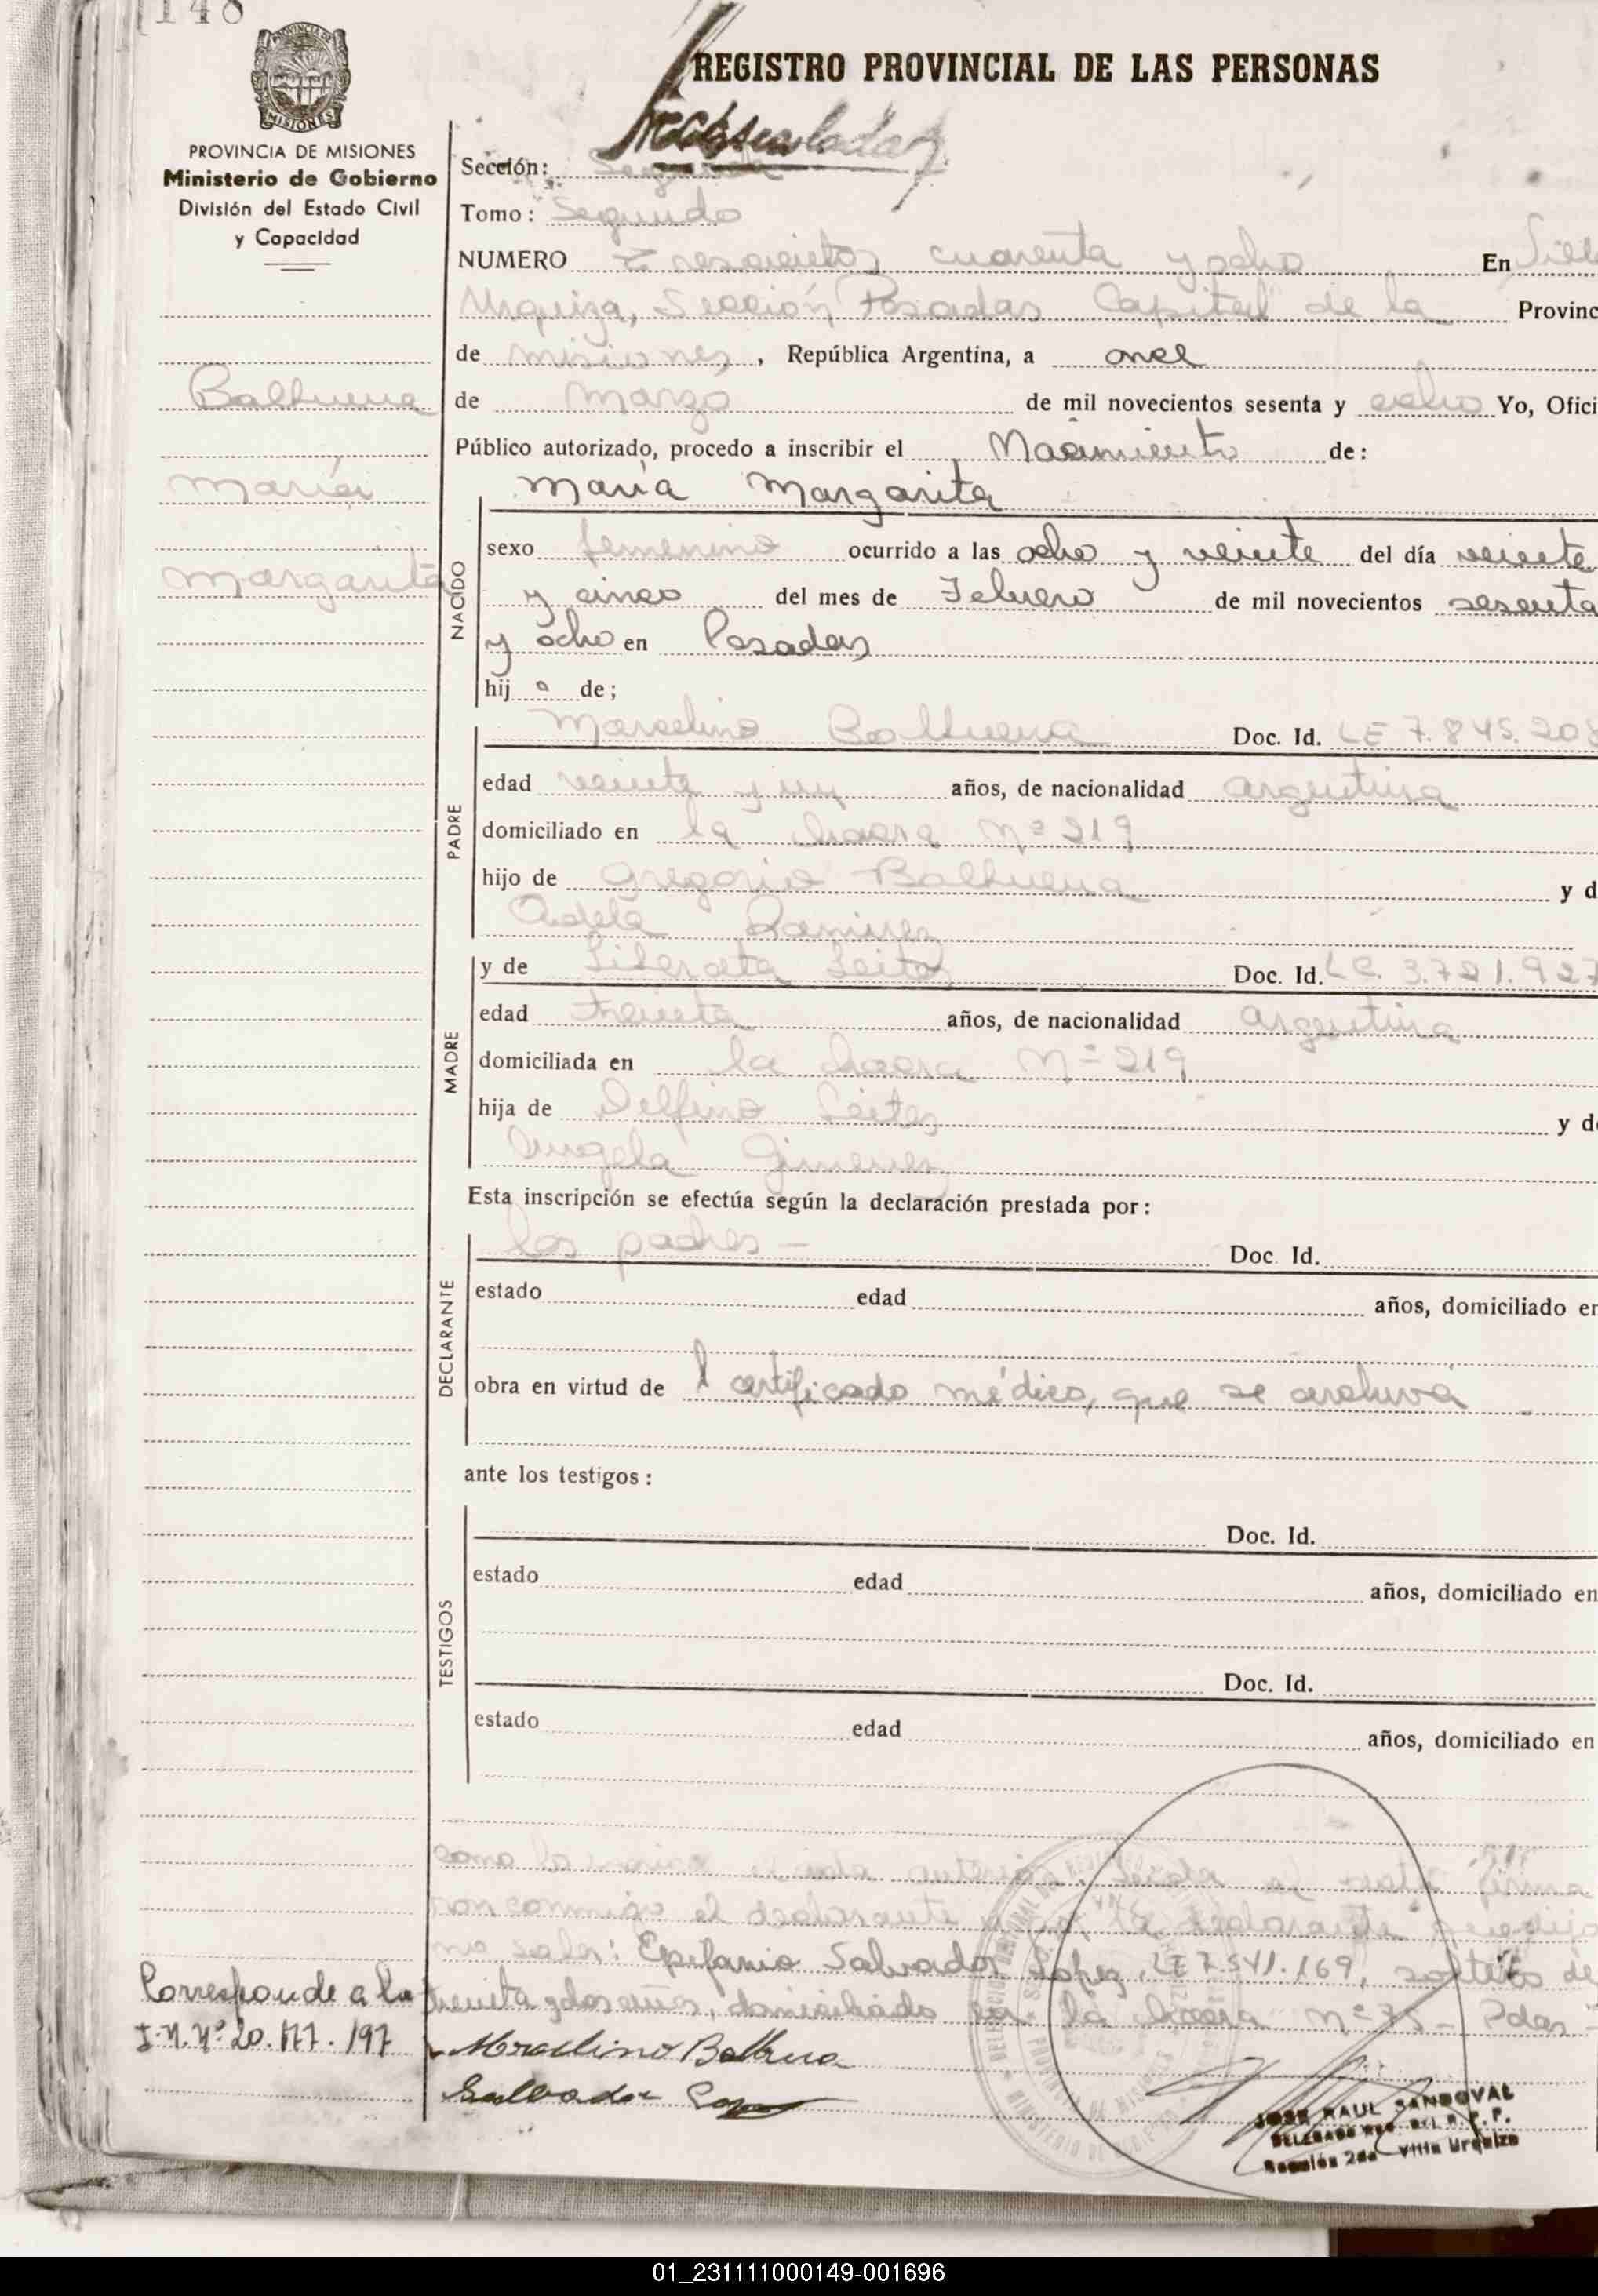 148
PROVINCIA DE MISIONES
MISIONES
PROVINCIA DE MISIONES
Ministerio de Gobierno
División del Estado Civil
y Capacidad
REGISTRO PROVINCIAL DE LAS PERSONAS
Sección: Segunda
Tomo: Segundo
NUMERO Trescientos cuarenta y ocho En Vill
Urquiza, Sección Posadas Capital de la Provinc
de Misiones, República Argentina, a once
de Marzo de mil novecientos sesenta y ocho Yo, Ofici
Público autorizado, procedo a inscribir el Nacimiento de:
Balbuena
María
Margarita
NACIDO
María Margarita
sexo femenino ocurrido a las ocho y veinte del día veinte
y cinco del mes de Febrero de mil novecientos sesenta
y ocho en Posadas
hij a de;
PADRE
Marcelino Balbuena Doc. Id. LE 7.845.208
edad veinte y un años, de nacionalidad argentina
domiciliado en la chacra Nº 219
hijo de Gregorio Balbuena y d
Adela Ramirez
MADRE
y de Liberata Leites Doc. Id. LC. 3.721.927
edad treinta años, de nacionalidad argentina
domiciliada en la chacra Nº 219
hija de Delfino Leites y de
Angela Gimenez
Esta inscripción se efectúa según la declaración prestada por:
DECLARANTE
los padres — Doc. Id.
estado edad años, domiciliado en
obra en virtud de l certificado médico, que se archiva
ante los testigos:
TESTIGOS
Doc. Id.
estado edad años, domiciliado en
Doc. Id.
estado edad años, domiciliado en
como la anterior. Leida el acta firma
con conmigo el declarante y por la declarante que dijo
no saber: Epifanio Salvador Lopez, LE 7.541.169, soltero de
treinta y dos años, domiciliado en la chacra Nº 75 - Pdas -
Corresponde a la
I.N. Nº 20.177.197
Marcelino Balbuena
Salvador Lopez
JOSE RAUL SANDOVAL
DELEGADO REG. DEL R. P. P.
Sección 2da Villa Urquiza
01_231111000149-001696